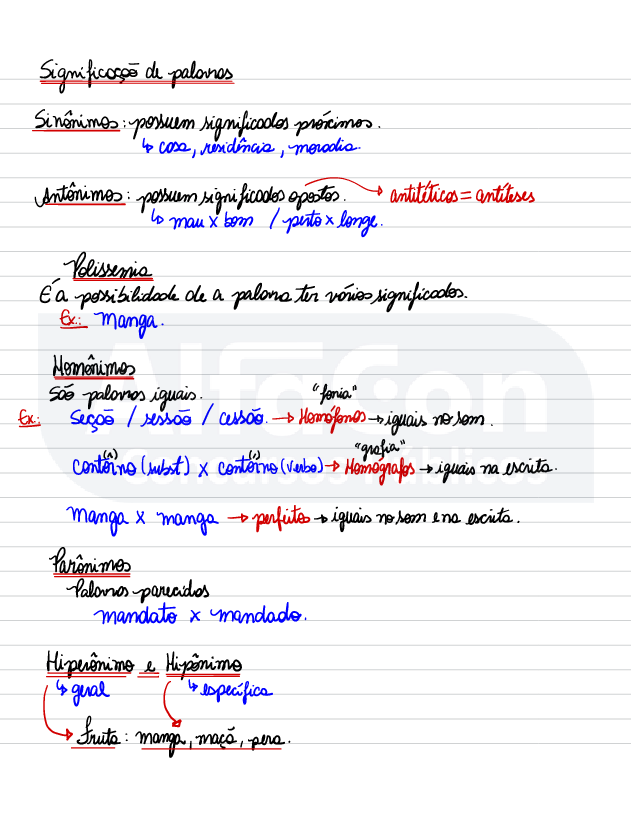 Significação de palavras
Sinônimos: possuem significados próximos.
↳ casa, residência, moradia.
Antônimos: possuem significados opostos. → antitéticos = antíteses
↳ mau x bom / perto x longe.
Polissemia
É a possibilidade de a palavra ter vários significados.
Ex.: Manga.
Homônimos
São palavras iguais. "fonia"
Ex.: Seção / sessão / cessão. → Homófonos → iguais no som.
"grafia"
contorno (subst) x contorno (verbo) → Homógrafos → iguais na escrita.
Manga x manga → perfeito → iguais no som e na escrita.
Parônimos
Palavras parecidas
mandato x mandado.
Hiperônimo e Hipônimo
↳ geral ↳ específica
Fruta: manga, maçã, pera.
AlfaCon
Concursos Públicos